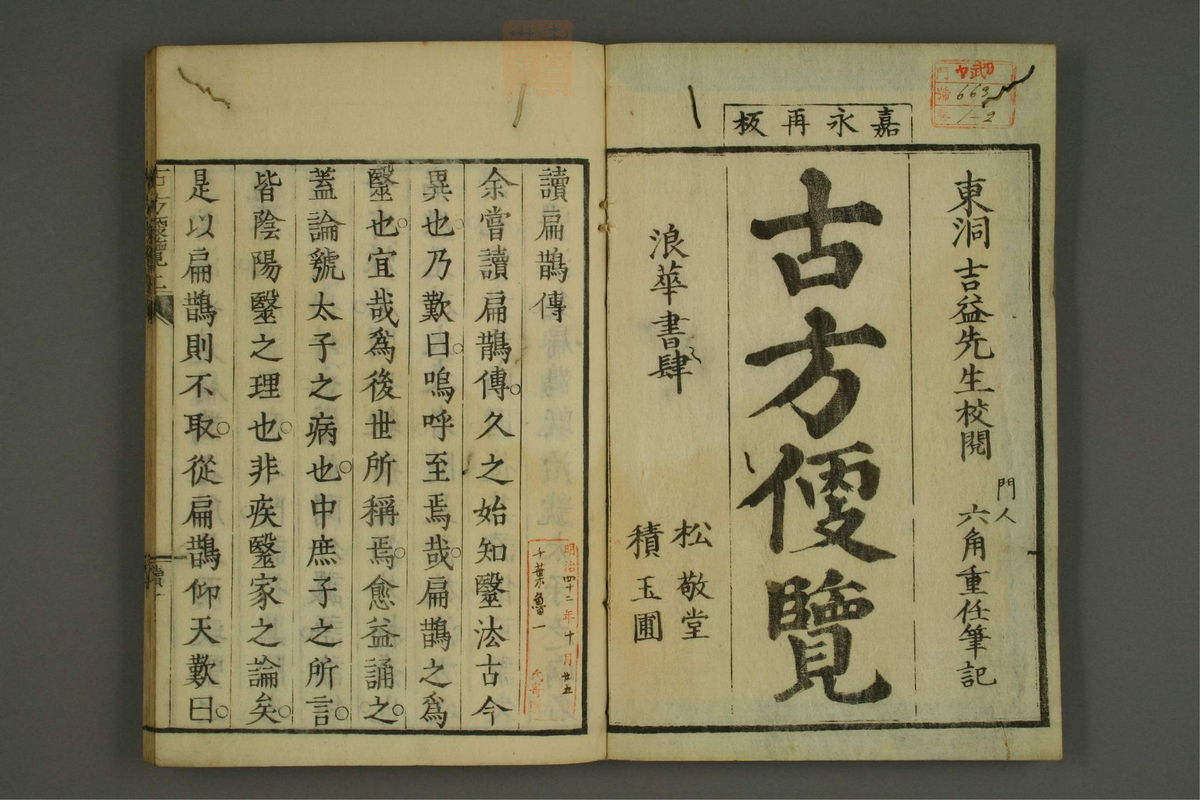 嘉永再板
東洞吉益先生校閱
門人 六角重任筆記
古方便覽
浪華書肆
松敬堂
積玉圃
讀扁鵲傳
余嘗讀扁鵲傳。久之始知毉法古今
異也。乃歎曰。嗚呼至焉哉。扁鵲之爲
毉也。宜哉爲後世所稱焉。愈益誦之。
蓋論虢太子之病也。中庶子之所言。
皆陰陽毉之理也。非疾毉家之論矣。
是以扁鵲則不取。從扁鵲仰天歎曰。
663
1-2
明治四十二年十月廿五
千葉魯一